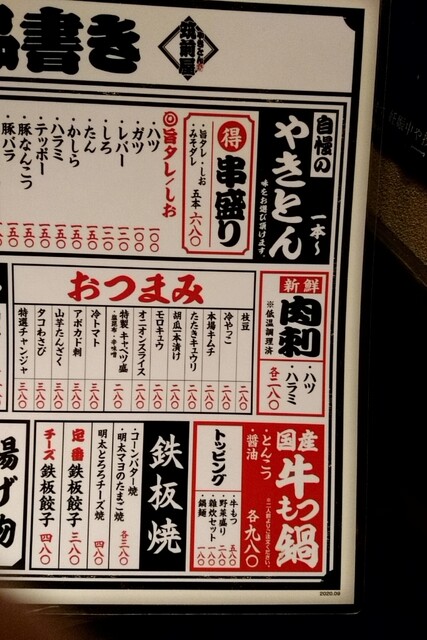 書き
やきとん
筑前屋
自慢の
やきとん
一本～
味をお選び頂けます。
得
串盛り
・旨タレ・しお
・みそダレ
五本 六八〇
◎旨タレ/しお
・ハツ
・ガツ
・レバー
・しろ
・たん
・かしら
・ハラミ
・テッポー
・豚なんこつ
・豚バラ
新鮮
肉刺
※低温調理済
・ハツ
・ハラミ
各二八〇
おつまみ
枝豆 二八〇
冷やっこ 二八〇
本場キムチ 二八〇
たたきキュウリ 二八〇
胡瓜一本漬け 二八〇
モロキュウ 二八〇
オニオンスライス 二八〇
特製キャベツ盛
・塩昆布・辛味噌 二八〇
冷トマト 三八〇
アボカド刺 三八〇
山芋たんざく 三八〇
タコわさび 三八〇
特選チャンジャ 三八〇
国産
牛もつ鍋
・とんこつ
・醤油
各九八〇
トッピング
・牛もつ 五八〇
・野菜盛り 二八〇
・雑炊セット 二八〇
・鍋麺 一八〇
鉄板焼
・コーンバター焼
・明太マヨのたまご焼
各三八〇
明太とろろチーズ焼 四八〇
定番 鉄板餃子 三八〇
チーズ 鉄板餃子 四八〇
揚げ物
2020.09